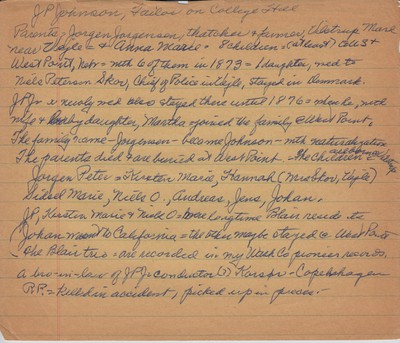 JP Johnson, Tailor on College Hill
Parents, Jorgen Jorgensen, thatcher & farmer, Tistrup Mark
near Ugle = & Anna Marie = 8 children. (at least) came to
West Point, Nebr = with 6 of them in 1873 = 1 daughter, md to
Niels Peterson Skov, Chief of Police in, stayed in Denmark.
JP Jr newly md also stayed there until 1876 = when he, with
wife & baby daughter, Martha rejoined the family @ West Point.
The family name - Jorgensen - became Johnson - with naturalization
The parents died & are buried at West Point - The children
Jorgen Peter = Kirsten Marie, Hannah (Mrs Skov,
Sidsel Marie, Niels O., Andreas, Jens, Johan.
JP, Kirsten Marie & Niels O = were longtime Blair resids =
Johan went to California = the other maybe stayed @ West Point
The Blair trio = are recorded in my Wash Co pioneer records.
A bro-in-law of JP Jr conductor (?) Korsør - Copenhagen
RR = killed in accident, picked up in pieces -